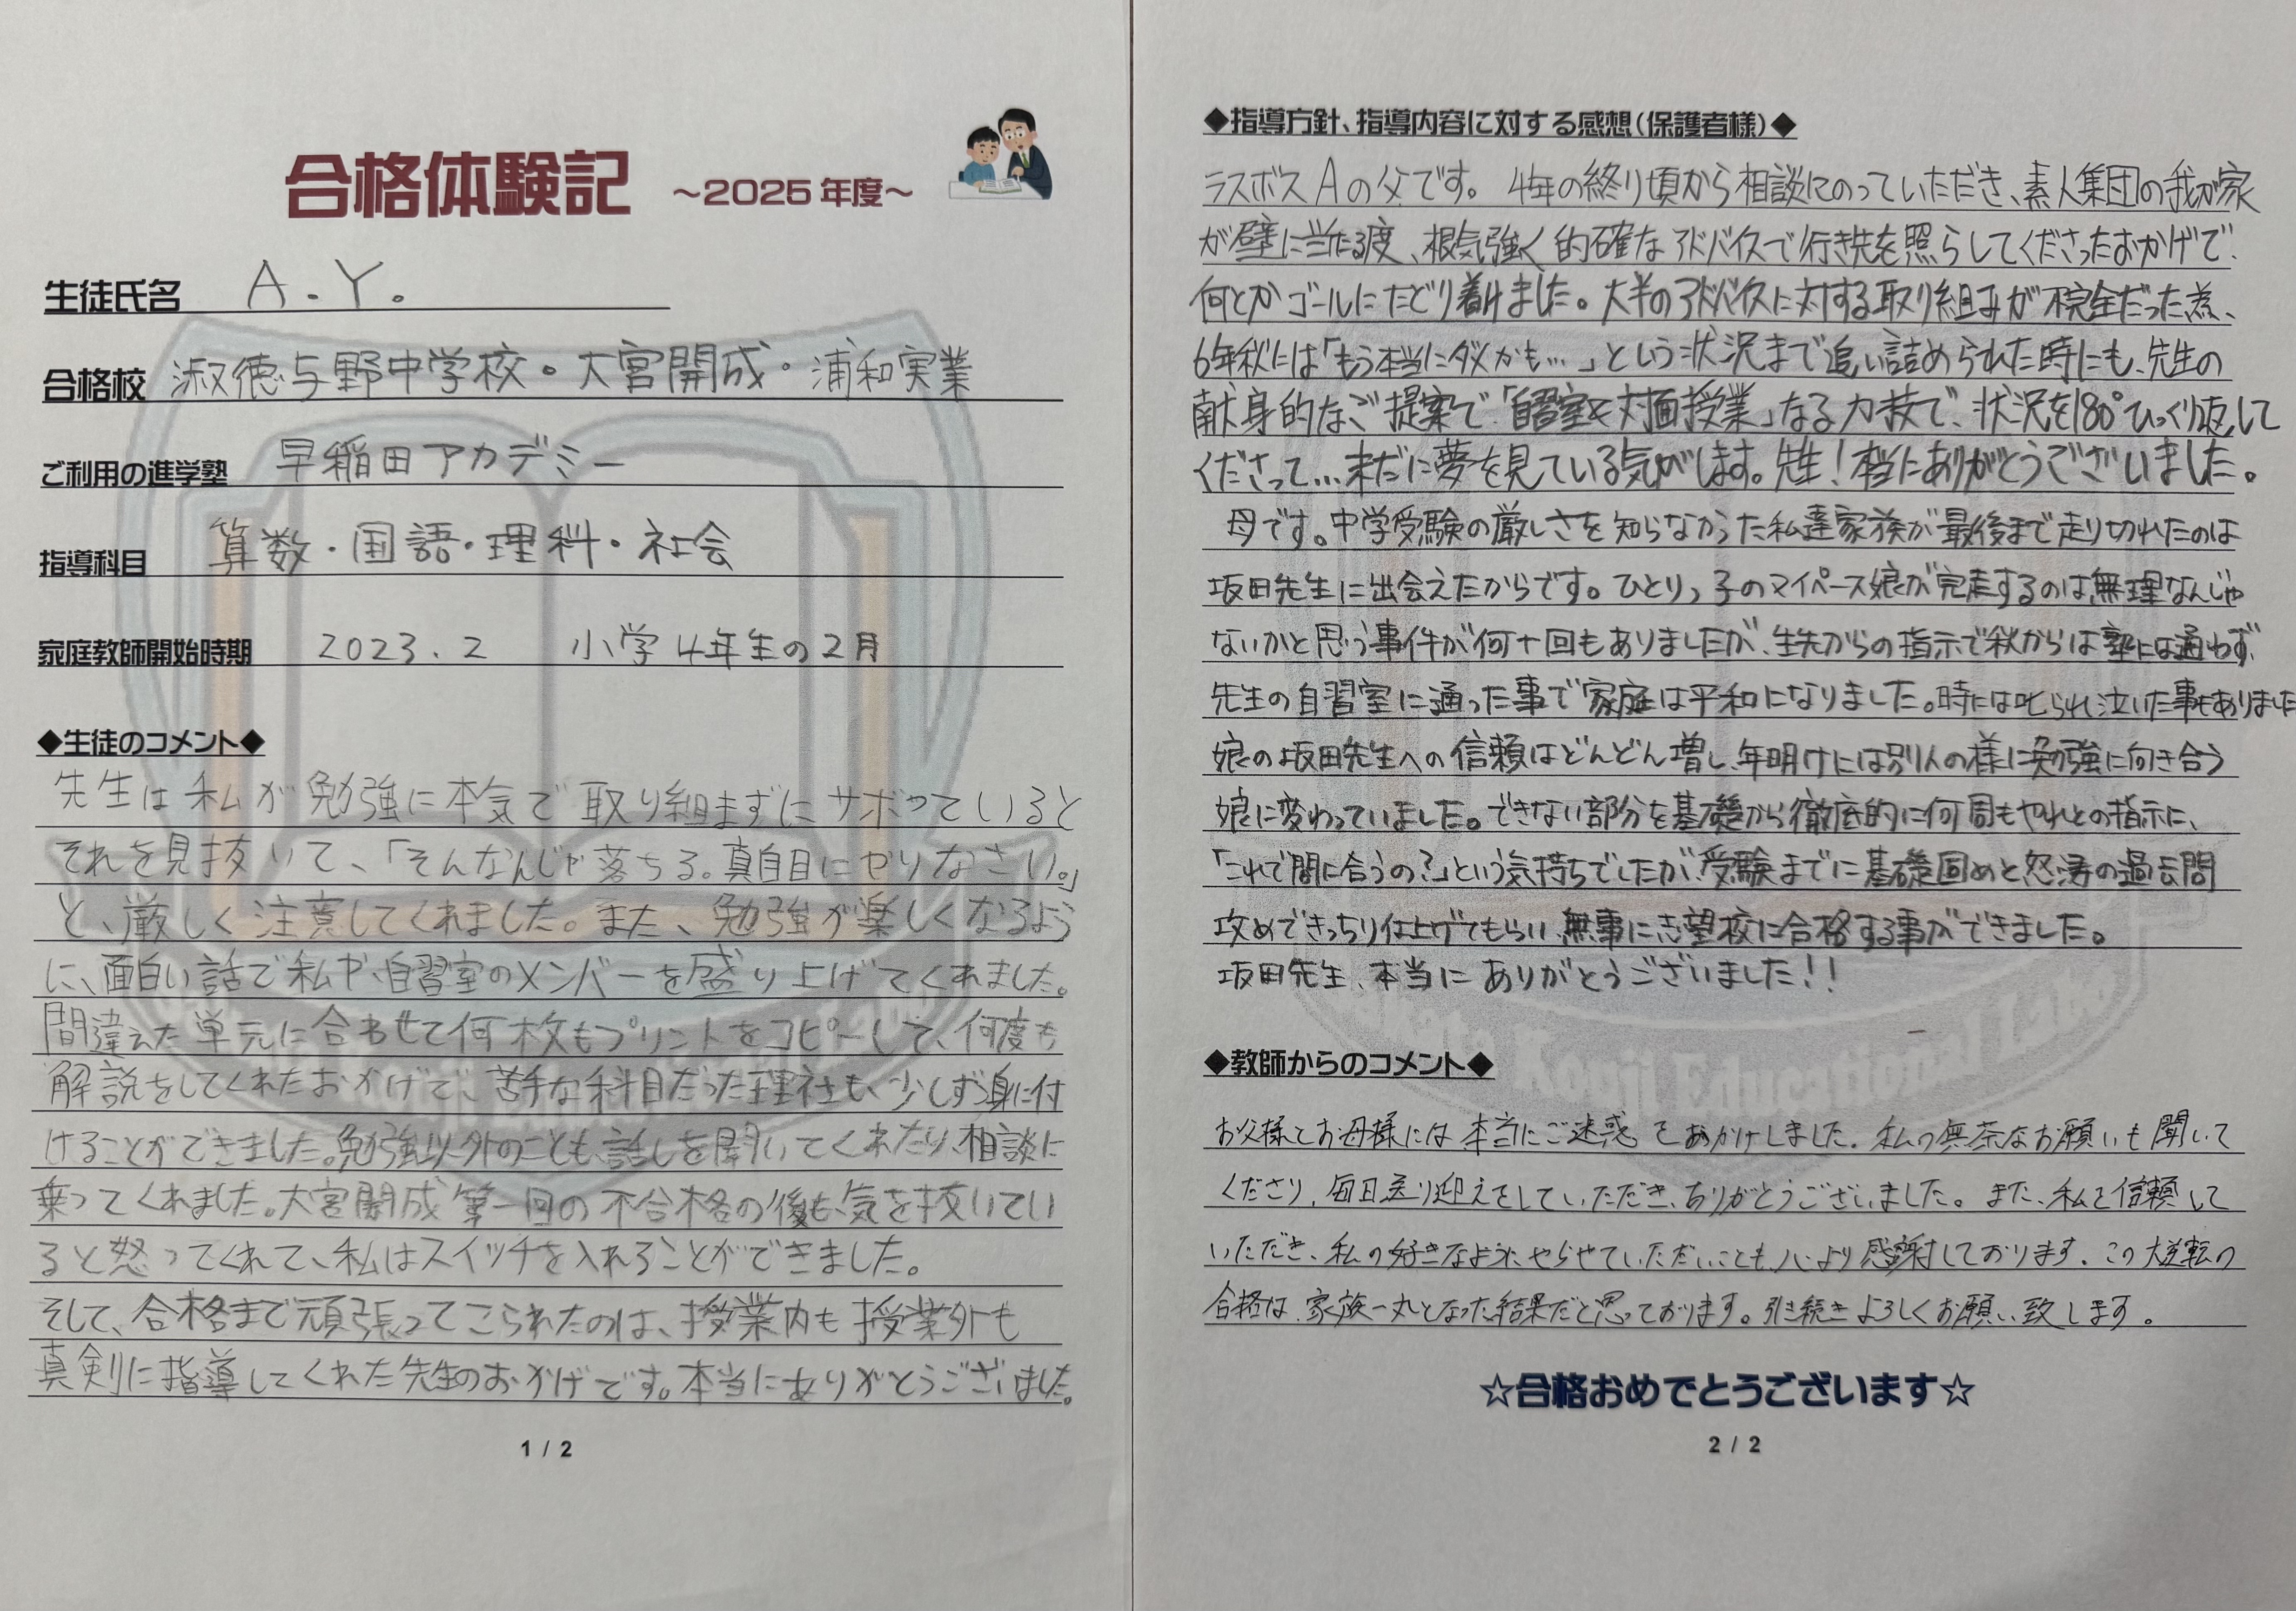 合格体験記 ～2025年度～
生徒氏名 A.Y.
合格校 淑徳与野中学校・大宮開成・浦和実業
ご利用の進学塾 早稲田アカデミー
指導科目 算数・国語・理科・社会
家庭教師開始時期 2023.2 小学4年生の2月
◆生徒のコメント◆
先生は私が勉強に本気で取り組まずにサボっていると
それを見抜いて、「そんなんじゃ落ちる。真面目にやりなさい。」
と、厳しく注意してくれました。また、勉強が楽しくなるよう
に、面白い話で私や、自習室のメンバーを盛り上げてくれました。
間違えた単元に合わせて何枚もプリントをコピーして、何度も
解説をしてくれたおかげで、苦手な科目だった理社も、少しずつ身に付
けることができました。勉強以外のことも、話しを聞いてくれたり、相談に
乗ってくれました。大宮開成第一回の不合格の後も、気を抜いてい
ると怒ってくれて、私はスイッチを入れることができました。
そして、合格まで頑張ってこられたのは、授業内も授業外も
真剣に指導してくれた先生のおかげです。本当にありがとうございました。
1 / 2
◆指導方針、指導内容に対する感想(保護者様)◆
ラスボスAの父です。4年の終り頃から相談にのっていただき、素人集団の我が家
が壁に当たる度、根気強く的確なアドバイスで行き先を照らしてくださったおかげで、
何とかゴールにたどり着けました。大半のアドバイスに対する取り組みが不完全だった為、
6年秋には「もう本当にダメかも…」という状況まで追い詰められた時にも、先生の
献身的なご提案で、「自習室&対面授業」なる力技で、状況を180°ひっくり返して
くださって…未だに夢を見ている気がします。先生!本当にありがとうございました。
母です。中学受験の厳しさを知らなかった私達家族が最後まで走り切れたのは
坂田先生に出会えたからです。ひとりっ子のマイペース娘が完走するのは無理なんじゃ
ないかと思う事件が何十回もありましたが、生先からの指示で秋からは塾には通わず、
先生の自習室に通った事で家庭は平和になりました。時には叱られ泣いた事もありました
娘の坂田先生への信頼はどんどん増し、年明けには別人の様に勉強に向き合う
娘に変わっていました。できない部分を基礎から徹底的に何周もやれとの指示に、
「これで間に合うの?」という気持ちでしたが、受験までに基礎固めと怒涛の過去問
攻めできっちり仕上げてもらい、無事に志望校に合格する事ができました。
坂田先生、本当にありがとうございました!!
◆教師からのコメント◆
お父様とお母様には本当にご迷惑をおかけしました。私の無茶なお願いも聞いて
くださり、毎日送り迎えをしていただき、ありがとうございました。また、私を信頼して
いただき、私の好きなようにやらせていただいことも、心より感謝しております。この大逆転の
合格は、家族一丸となった結果だと思っております。引き続きよろしくお願い致します。
☆合格おめでとうございます☆
2 / 2